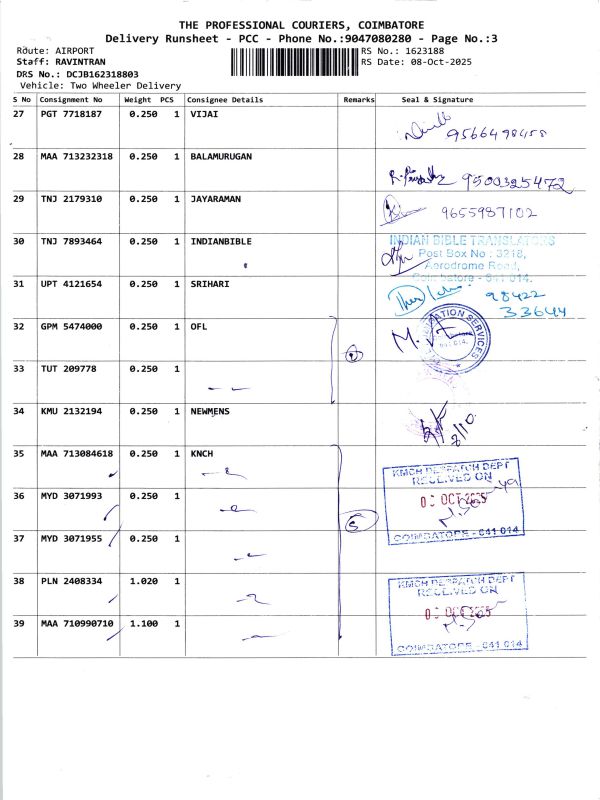 THE PROFESSIONAL COURIERS, COIMBATORE
Delivery Runsheet - PCC - Phone No.:9047080280 - Page No.:3
Route: AIRPORT
Staff: RAVINTRAN
DRS No.: DCJB162318803
Vehicle: Two Wheeler Delivery
RS No.: 1623188
RS Date: 08-Oct-2025
S No Consignment No Weight PCS Consignee Details Remarks Seal & Signature
27 PGT 7718187 0.250 1 VIJAI
9566498458
28 MAA 713232318 0.250 1 BALAMURUGAN
9500325472
29 TNJ 2179310 0.250 1 JAYARAMAN
9655987102
30 TNJ 7893464 0.250 1 INDIANBIBLE
INDIAN BIBLE TRANSLATORS
Post Box No : 3218,
Aerodrome Road,
Coimbatore - 641 014.
31 UPT 4121654 0.250 1 SRIHARI
98422
33644
32 GPM 5474000 0.250 1 OFL
33 TUT 209778 0.250 1
34 KMU 2132194 0.250 1 NEWMENS
8/10
35 MAA 713084618 0.250 1 KNCH
KMCH DESPATCH DEPT
RECEIVED ON
OCT 2025
COIMBATORE - 641 014
36 MYD 3071993 0.250 1
37 MYD 3071955 0.250 1
38 PLN 2408334 1.020 1
KMCH DESPATCH DEPT
RECEIVED ON
OCT 2025
COIMBATORE - 641 014
39 MAA 710990710 1.100 1